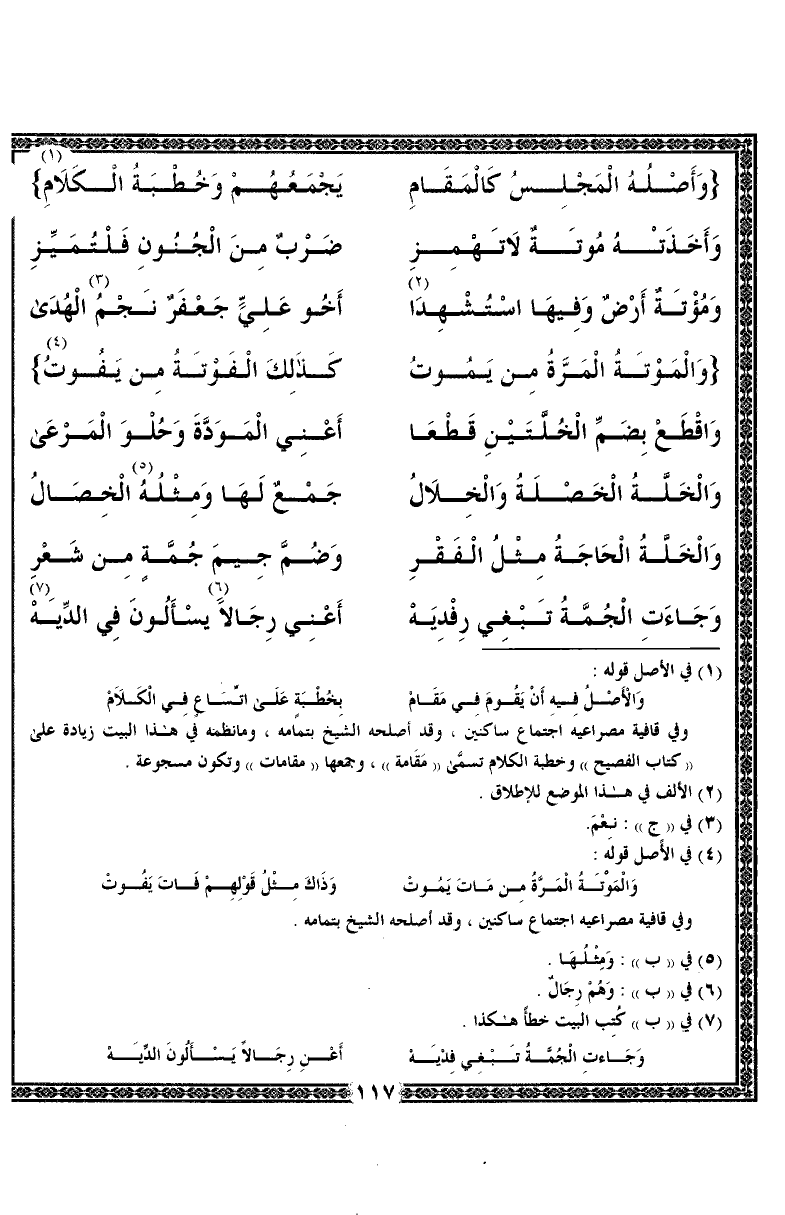 {وَأَصْلُهُ الْمَجْلِسُ كَالْمَقَامِ يَجْمَعُهُمْ وَخُطْبَةُ الْكَلَامِ} (١)
وَأَخَذَتْهُ مُوتَةٌ لَاتَهْمِزِ ضَرْبٌ مِنَ الْجُنُونِ فَلْتُمَيِّزِ
وَمُؤْتَةٌ أَرْضٌ وَفِيهَا اسْتُشْهِدَا (٢) أَخُو عَلِيٍّ جَعْفَرٌ نَجْمُ (٣) الْهُدَىٰ
{وَالْمَوْتَةُ الْمَرَّةُ مِن يَمُوتُ كَذَٰلِكَ الْفَوْتَةُ مِن يَفُوتُ} (٤)
وَاقْطَعْ بِضَمِّ الْخُلَّتَيْنِ قَطْعَا أَعْنِي الْمَوَدَّةَ وَحُلْوَ الْمَرْعَىٰ
وَالْخَلَّةُ الْخَصْلَةُ وَالْخِلَالُ جَمْعٌ لَهَا وَمِثْلُهُ (٥) الْخِصَالُ
وَالْخَلَّةُ الْحَاجَةُ مِثْلُ الْفَقْرِ وَضُمَّ جِيمَ جُمَّةٍ مِن شَعْرِ
وَجَاءَتِ الْجُمَّةُ تَبْغِي رِفْدِيَهْ أَعْنِي رِجَالاً (٦) يَسْأَلُونَ فِي الدِّيَهْ (٧)
(١) في الأصل قوله :
وَالْأَصْلُ فِيهِ أَنْ يَقُومَ فِي مَقَامْ بِخُطْبَةٍ عَلَىٰ اتِّسَاعٍ فِي الْكَلَامْ
وفي قافية مصراعيه اجتماع ساكنين ، وقد أصلحه الشيخ بتمامه ، ومانظمه في هٰذا البيت زيادة علىٰ
(( كتاب الفصيح )) وخطبة الكلام تسمَّىٰ (( مَقَامة )) ، وجمعها (( مقامات )) وتكون مسجوعة .
(٢) الألف في هٰذا الموضع للإطلاق .
(٣) في (( ج )) : نِعْمَ.
(٤) في الأصل قوله :
وَالْمَوْتَةُ الْمَرَّةُ مِن مَاتَ يَمُوتْ وَذَاكَ مِثْلُ قَوْلِهِمْ فَاتَ يَفُوتْ
وفي قافية مصراعيه اجتماع ساكنين ، وقد أصلحه الشيخ بتمامه .
(٥) في (( ب )) : وَمِثْلُهَا .
(٦) في (( ب )) : وَهُمْ رِجَالٌ .
(٧) في (( ب )) كُتب البيت خطأً هٰكذا .
وَجَاءتِ الْجُمَّةُ تَبْغِي فِدْيَهْ أَعْنِ رِجَالاً يَسْأَلُونَ الدِّيَهْ
١١٧